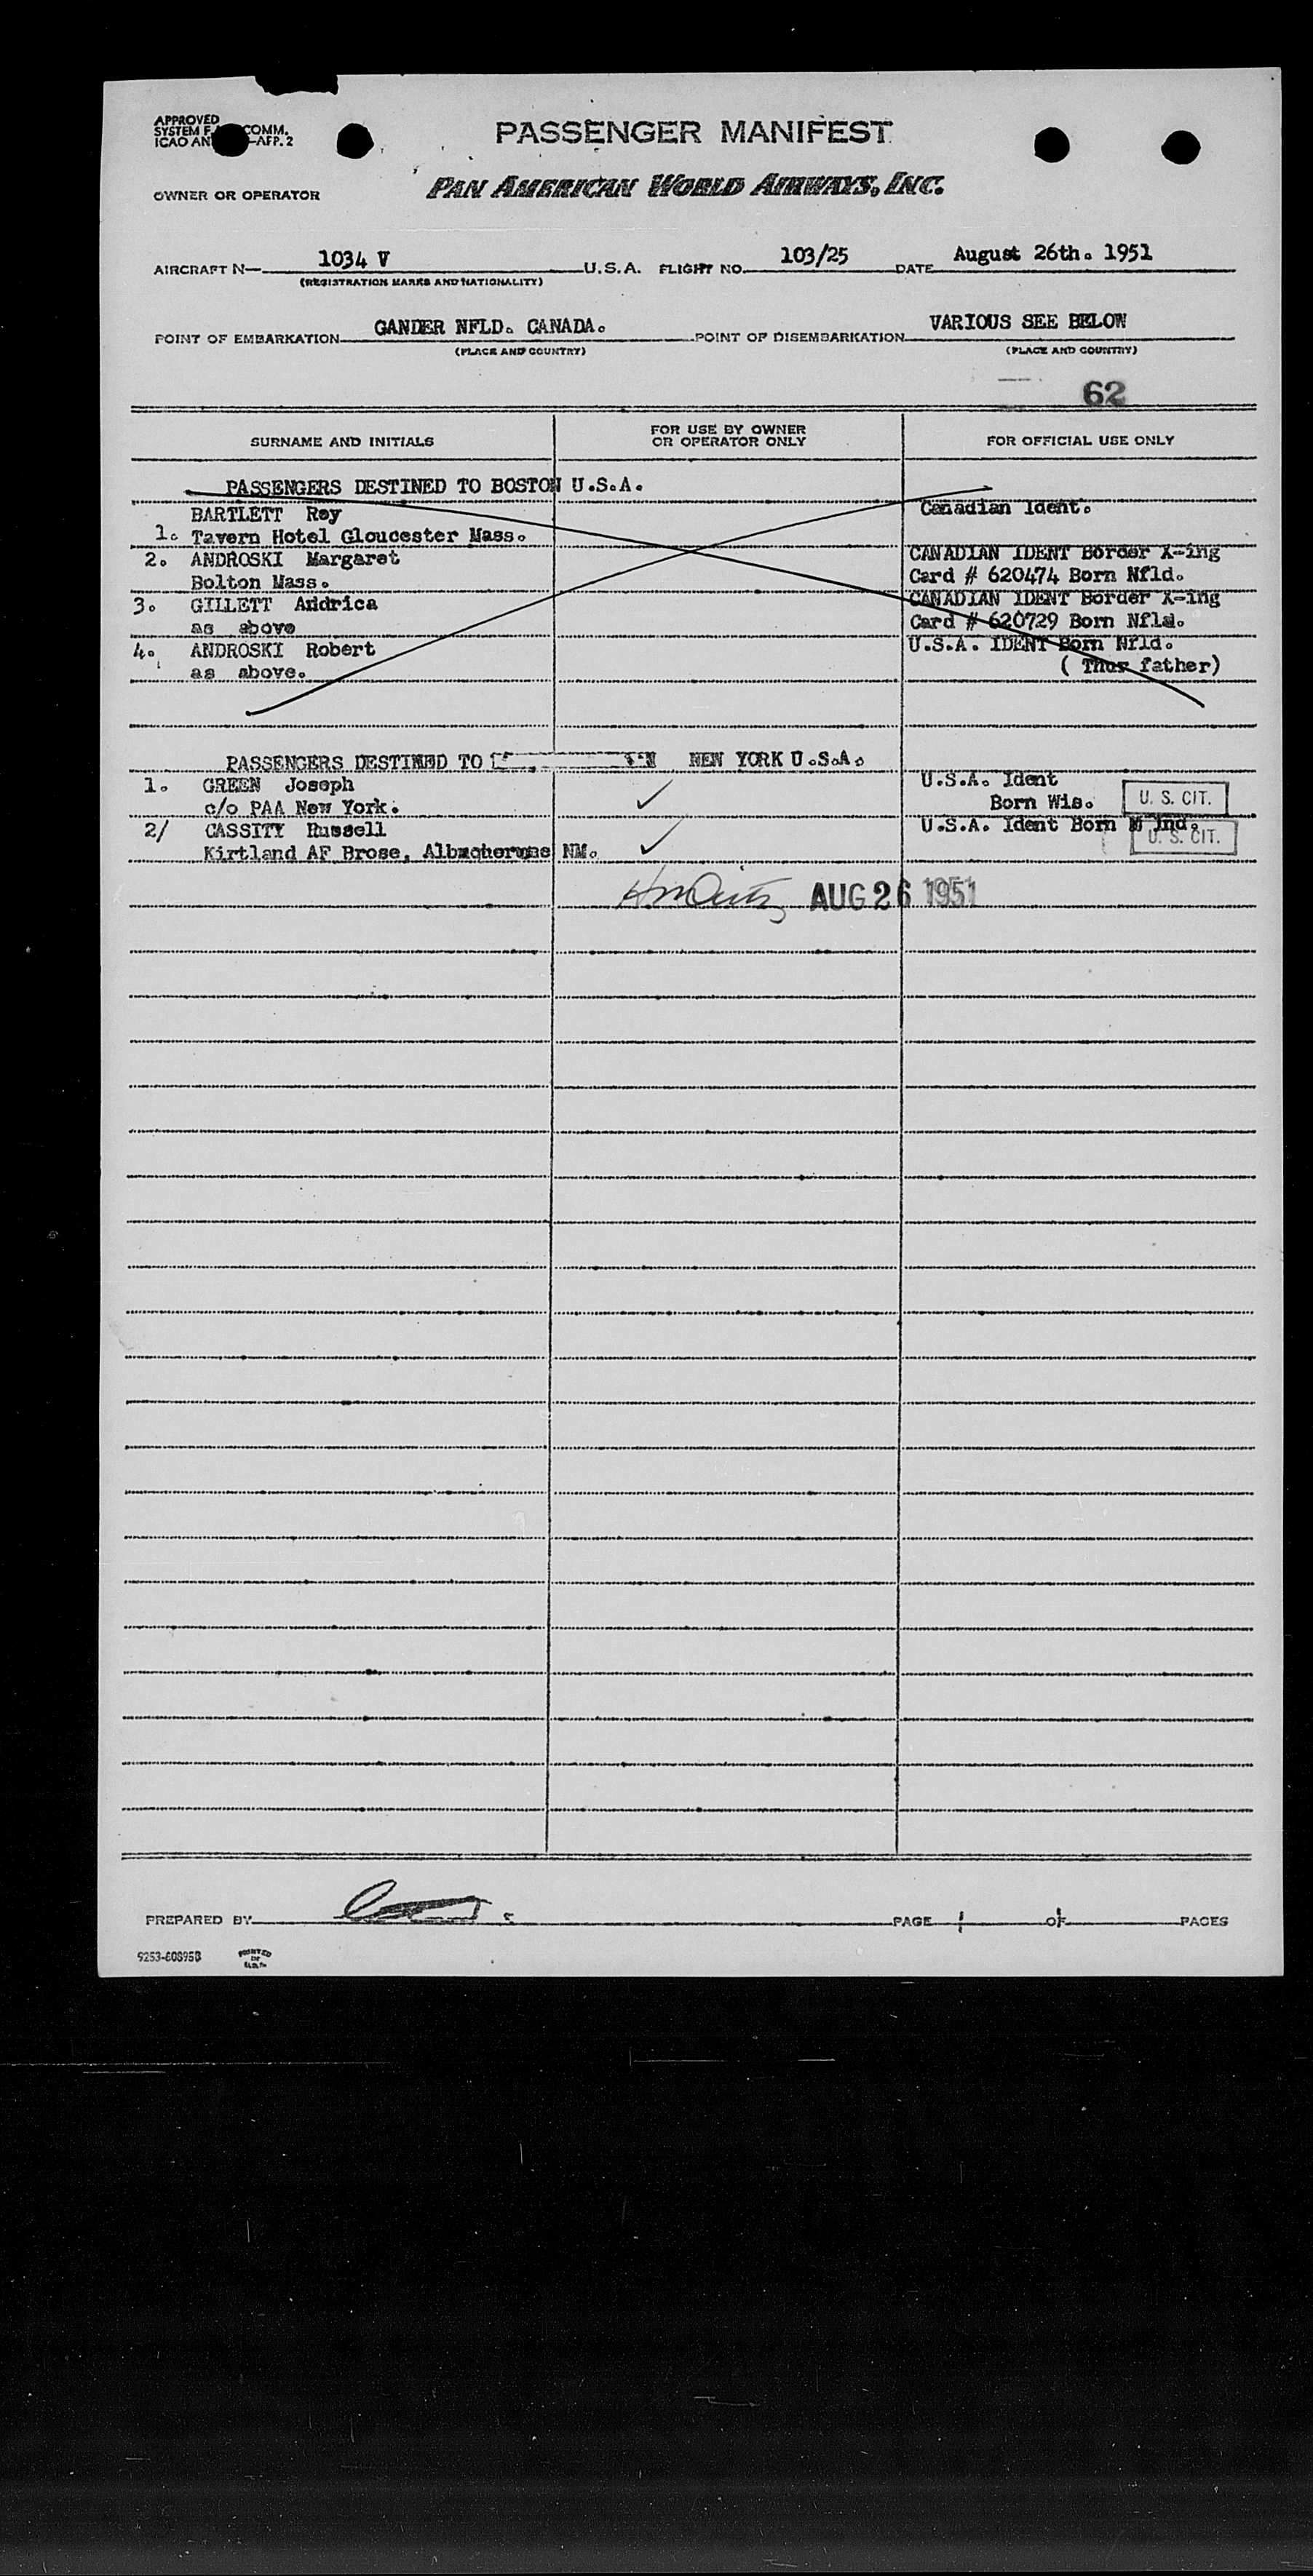 APPROVED
SYSTEM F COMM.
ICAO AN -AFP. 2
PASSENGER MANIFEST
OWNER OR OPERATOR
PAN AMERICAN WORLD AIRWAYS, INC.
AIRCRAFT N— 1034 V U.S.A. FLIGHT NO. 103/25 DATE August 26th. 1951
(REGISTRATION MARKS AND NATIONALITY)
POINT OF EMBARKATION GANDER NFLD. CANADA. POINT OF DISEMBARKATION VARIOUS SEE BELOW
(PLACE AND COUNTRY) (PLACE AND COUNTRY)
62
SURNAME AND INITIALS FOR USE BY OWNER OR OPERATOR ONLY FOR OFFICIAL USE ONLY
PASSENGERS DESTINED TO BOSTON U.S.A.
BARTLETT Roy Canadian Ident.
1. Tavern Hotel Gloucester Mass.
2. ANDROSKI Margaret CANADIAN IDENT Border X-ing
Bolton Mass. Card # 620474 Born Nfld.
3. GILLETT Andrica CANADIAN IDENT Border X-ing
as above Card # 620729 Born Nfld.
4. ANDROSKI Robert U.S.A. IDENT Born Nfld.
as above. ( Thur father)
PASSENGERS DESTINED TO NEW YORK U.S.A.
1. GREEN Joseph U.S.A. Ident
c/o PAA New York. Born Wis. U. S. CIT.
2/ CASSITY Russell U.S.A. Ident Born Ind.
Kirtland AF Brose, NM. U. S. CIT.
AUG 26 1951
PREPARED BY PAGE 1 OF PAGES
9253-60895B
PRINTED
IN
U.S.A.